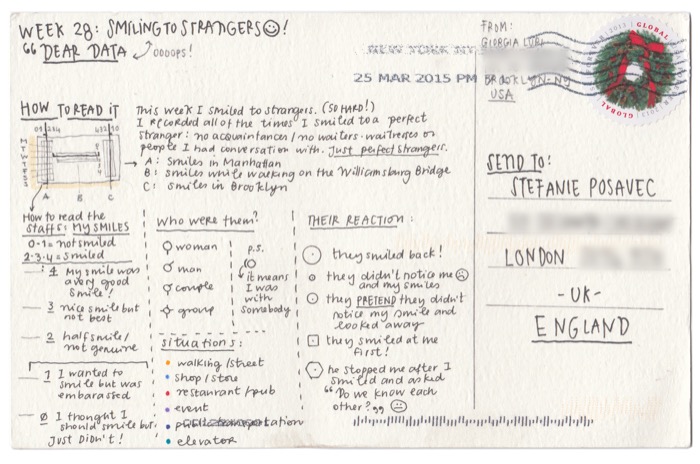 WEEK 28: SMILING TO STRANGERS!
" DEAR DATA
OOOOPS!
NEW YORK NY
25 MAR 2015 PM
FROM:
GIORGIA LUPI
BROOKLYN-NY
USA
GLOBAL
GLOBAL
HOW TO READ IT
This week I smiled to strangers. (SO HARD!)
I recorded all of the times I smiled to a perfect
stranger: no acquaintances / no waiters - waitresses or
people I had conversation with. Just perfect strangers.
A: smiles in Manhattan
B: smiles while walking on the Williamsburg Bridge
C: smiles in Brooklyn
M
T
W
T
F
S
S
A B C
How to read the
staffs: MY SMILES
0-1 = not smiled
2-3-4 = smiled
4 My smile was
a very good
smile!
3 nice smile but
not best
2 half smile/
not genuine
1 I wanted to
smile but was
embarassed
0 I thought I
should smile but
just didn't!
Who were them?
woman
man
couple
group
P.S.
it means
I was
with
somebody
situations:
walking / street
shop / store
restaurant / pub
event
public transportation
elevator
THEIR REACTION:
they smiled back!
they didn't notice me
and my smiles
they PRETEND they didn't
notice my smile and
looked away
they smiled at me
first!
he stopped me after I
smiled and asked
"Do we know each
other?"
SEND TO:
STEFANIE POSAVEC
LONDON
-UK-
ENGLAND